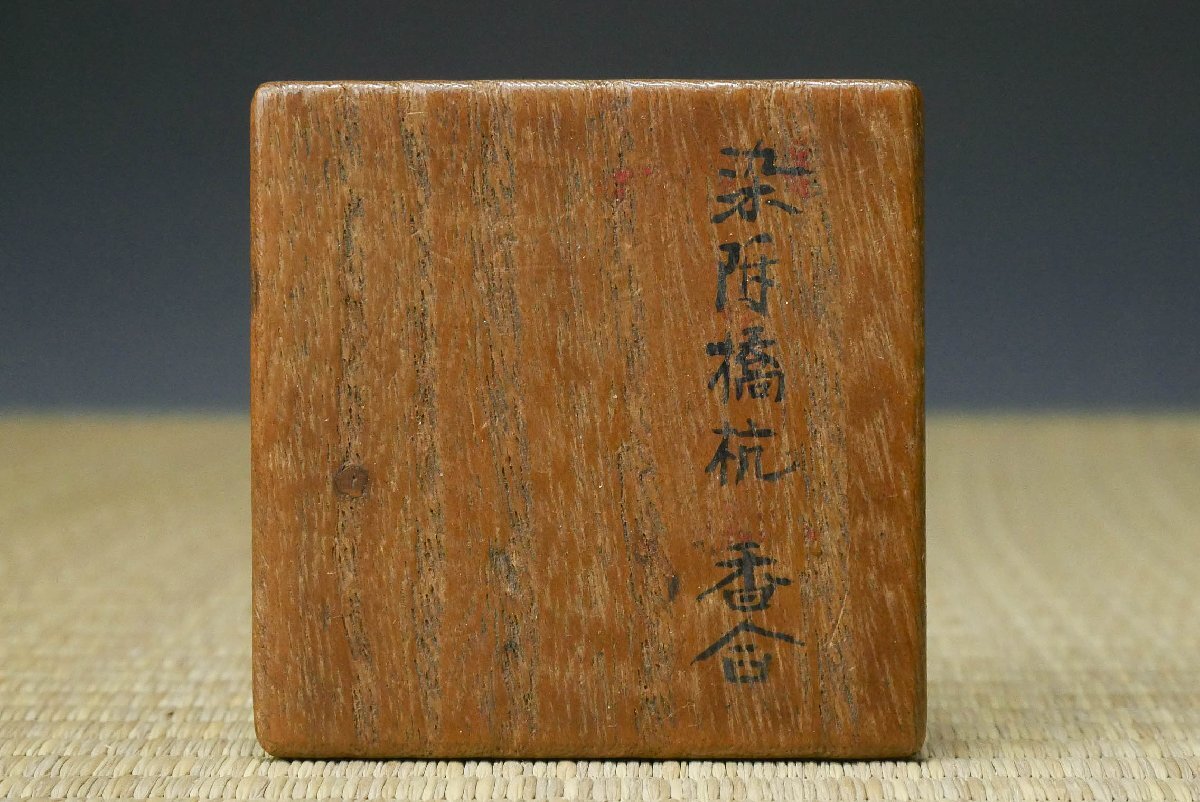 染付橋杭 香合